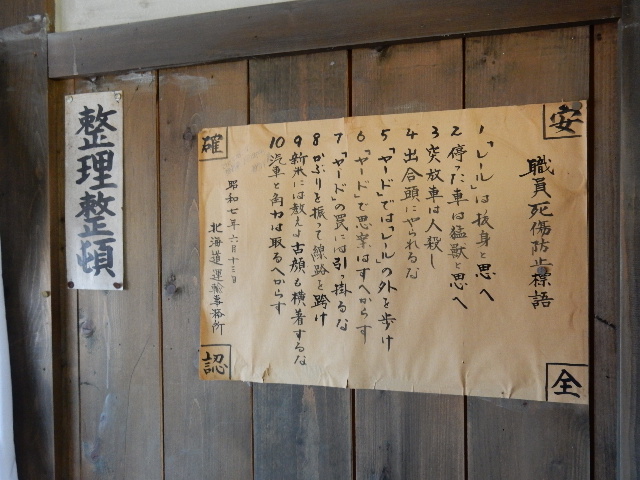 安
全
確
認
職員死傷防止標語
1 「レール」は抜身と思へ
2 停った車は猛獣と思へ
3 突放車は人殺し
4 出合頭にやられるな
5 「ヤード」では「レール」の外を歩け
6 「ヤード」で思案はすへからす
7 「ヤード」の罠には引っ掛るな
8 かぶりを振って線路を跨け
9 新米には教え古顔も横着するな
10 汽車と角力は取るへからす
昭和七年六月十三日
北海道運輸事務所
整理整頓